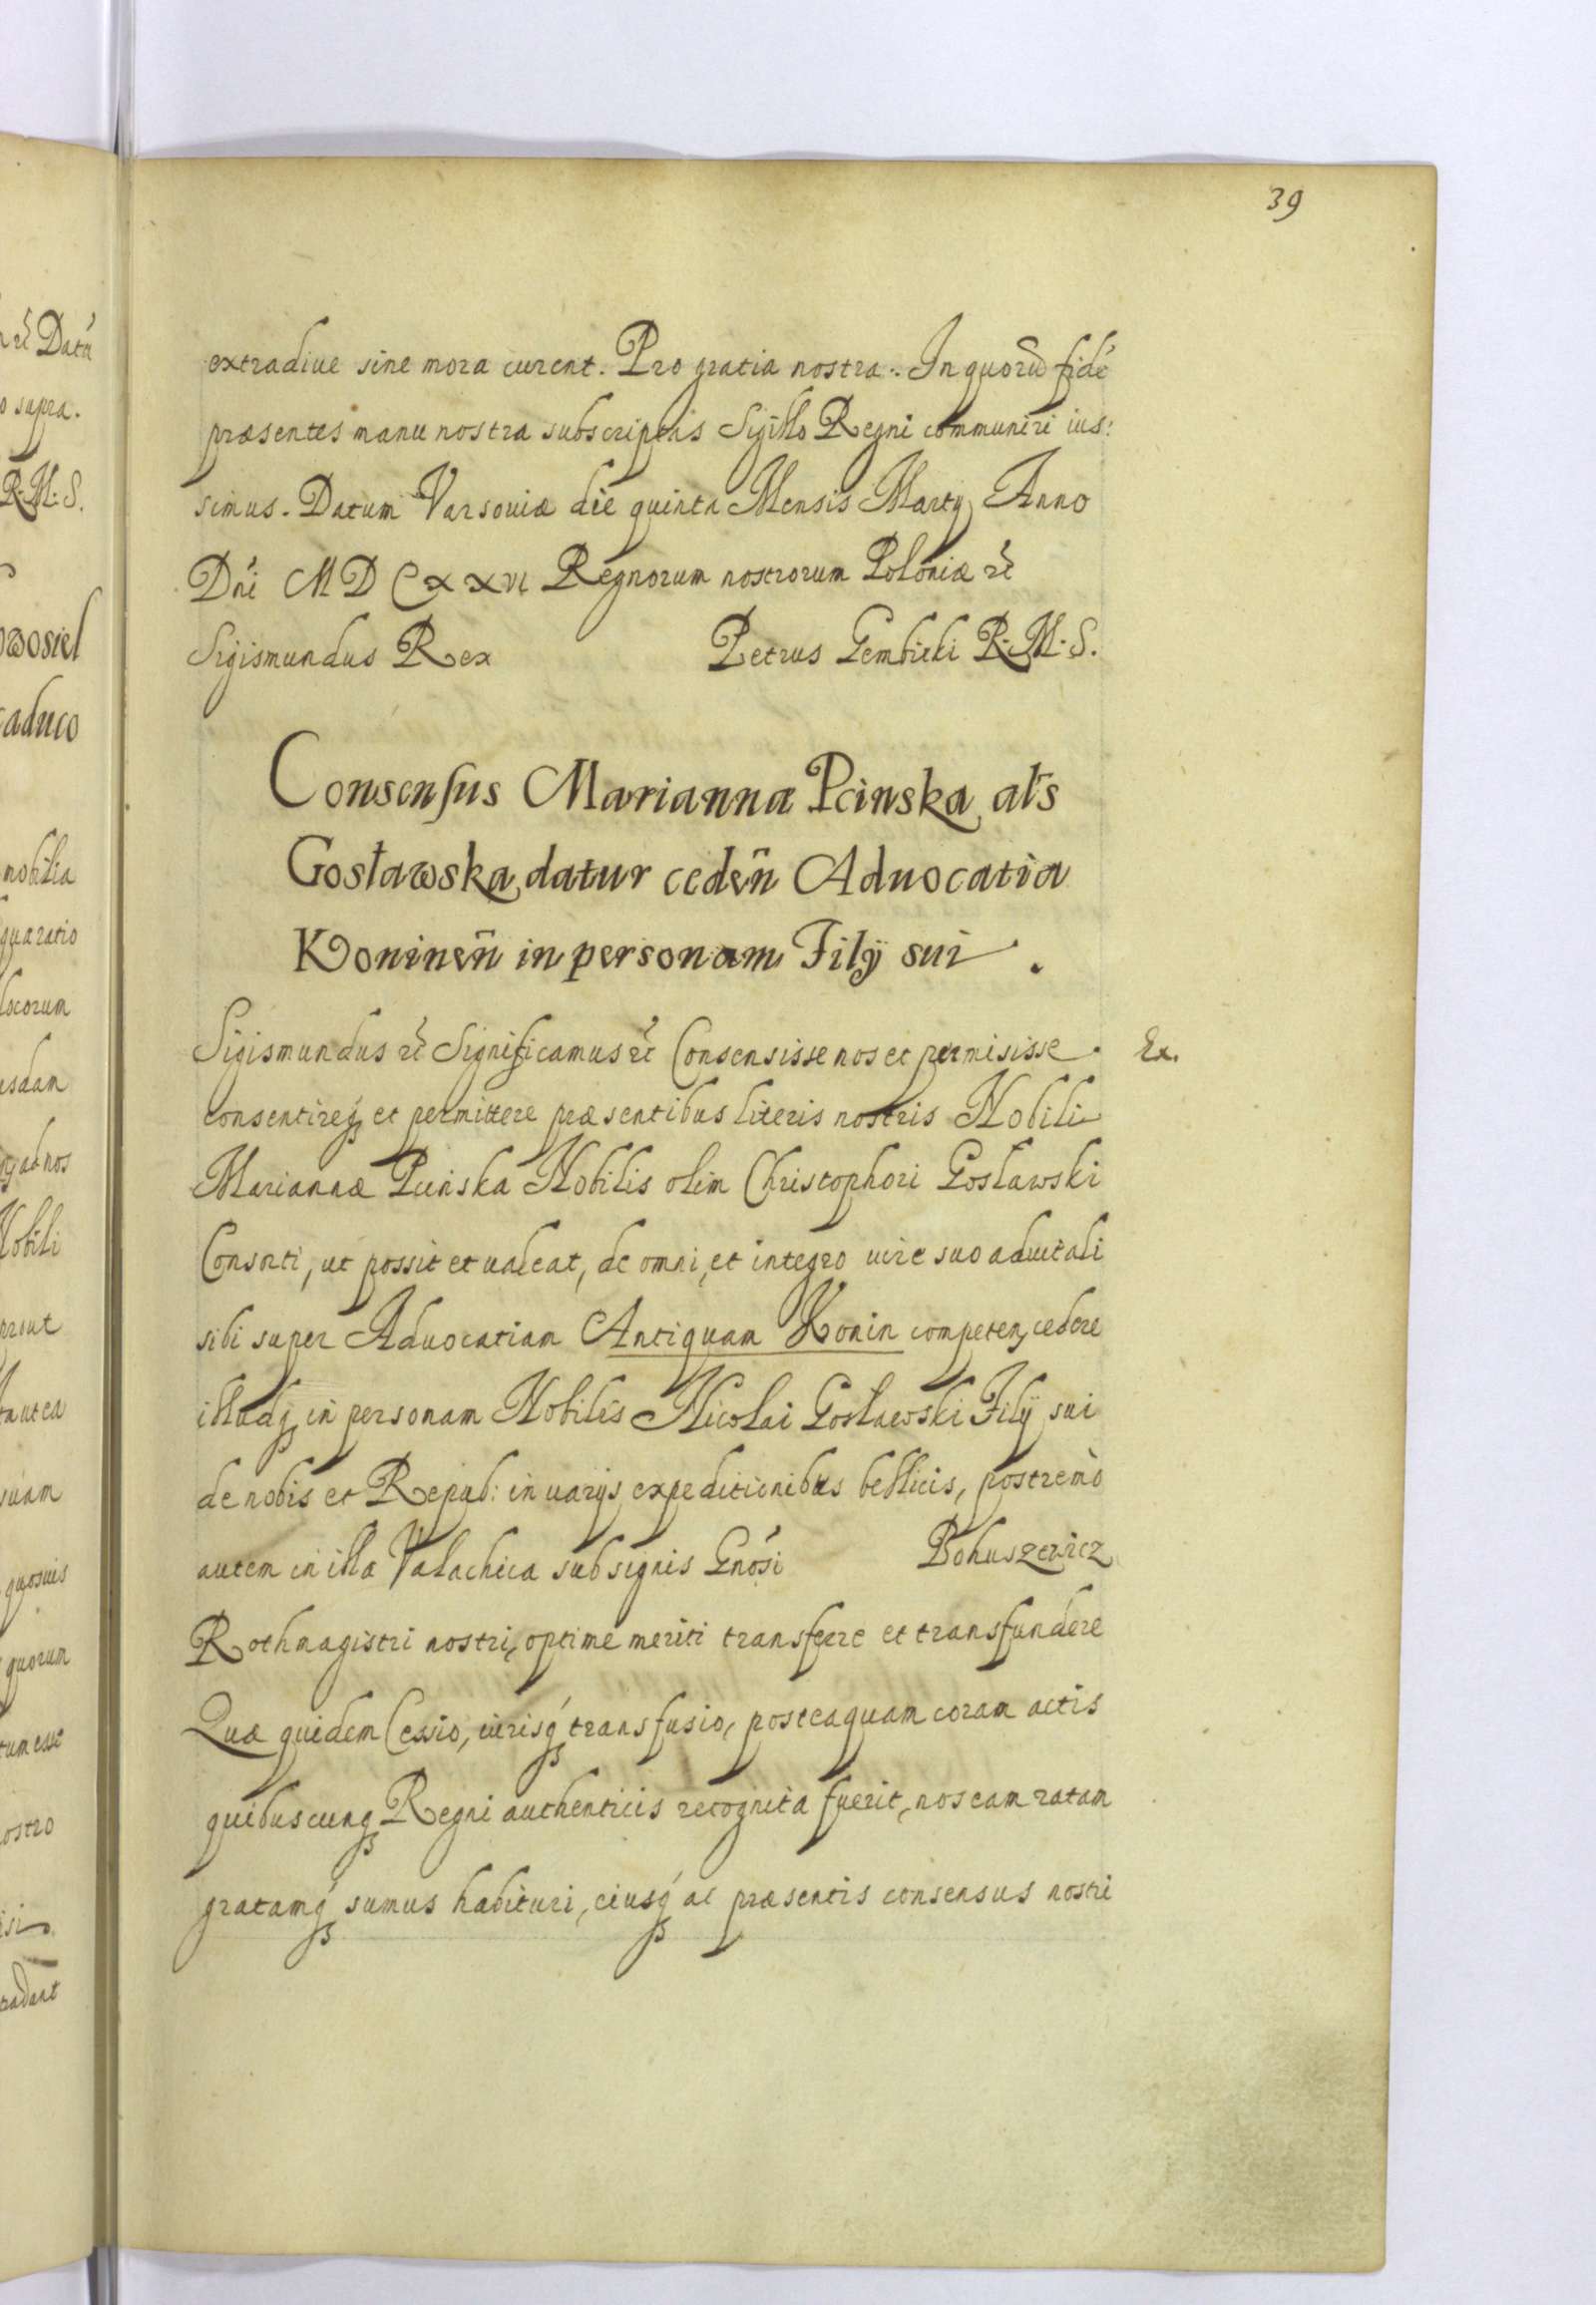 39
extradiue sine mora curent. Pro gratia nostra. In quorũ fidé
præsentes manu nostra subscriptas Sigillo Regni communiri ius:
simus. Datum Varsouiæ die quinta Mensis Martij Anno
Dńi MDCxxvi Regnorum nostrorum Poloniæ etc
Sigismundus Rex Petrus Gembicki R.M.S.
Consensus Marianna Pcinska als
Gosławska datur cedeñ Aduocatia
Konineñ in personam Filÿ sui.
Sigismundus etc Significamus etc Consensisse nos et permisisse
Ex.
consentireq et permittere præsentibus literis nostris Nobili
Mariannæ Pcinska Nobilis olim Christophori Gosławski
Consorti, ut possit et ualeat, de omni, et integro iure suo aduitali
sibi super Aduocatiam Antiquam Konin competeñ cedere
illudq in personam Nobilis Nicolai Gosławski Filÿ sui
de nobis et Repub: in uarÿs expeditionibus bellicis, postremò
autem in illa Valachica sub signis Gnósi Bohuszewicz
Rothmagistri nostri, optime meriti transferre et transfundere
Quæ quidem Cessio, iurisq́ transfusio, posteaquam coram actis
quibuscunq Regni authenticis recognita fuerit, nos eam ratam
gratamq́ sumus habituri, eiusq́ ac præsentis consensus nostri